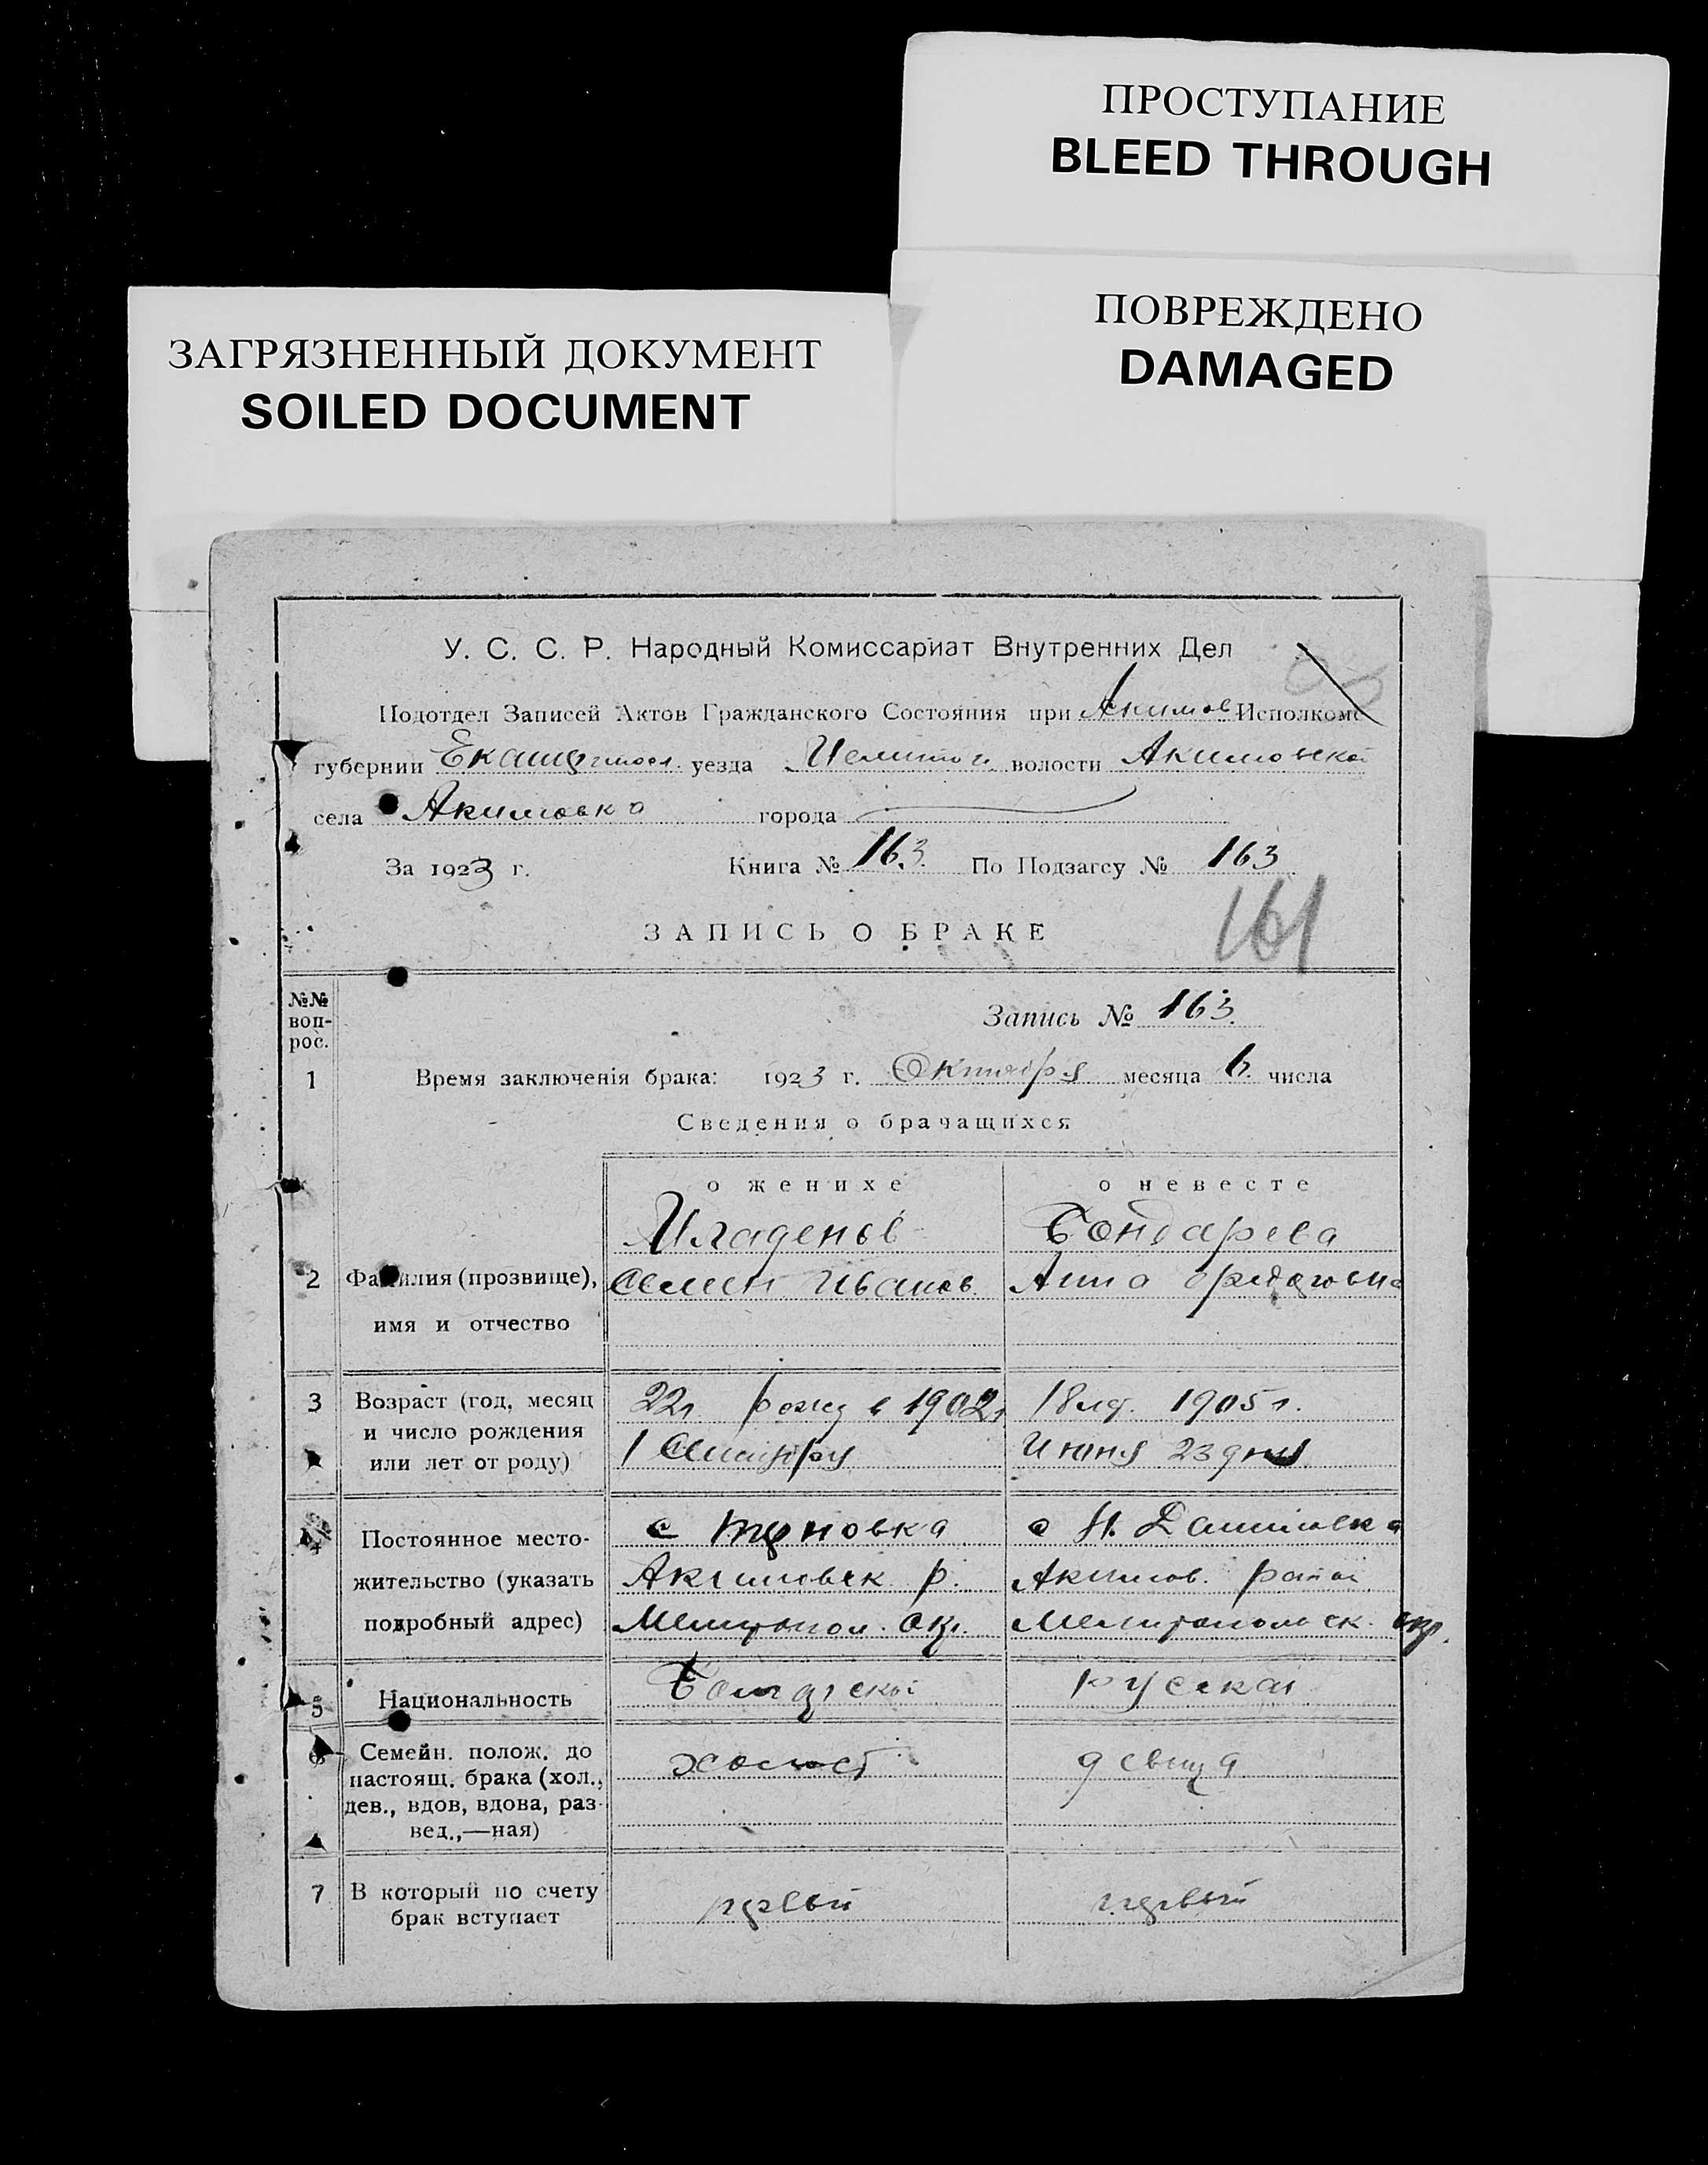 ПРОСТУПАНИЕ
BLEED THROUGH
ПОВРЕЖДЕНО
DAMAGED
ЗАГРЯЗНЕННЫЙ ДОКУМЕНТ
SOILED DOCUMENT
У. С. С. Р. Народный Комиссариат Внутренних Дел
Подотдел Записей Актов Гражданского Состояния при Акимов Исполкоме
губернии уезда волости Акимовской
села Акимовка города
За 1923 г. Книга № 163. По Подзагсу № 163
ЗАПИСЬ О БРАКЕ 161
№№ воп-рос.
Запись № 163.
1 Время заключенія брака: 1923 г. Октября месяца 6. числа
Сведения о брачащихся
о женихе о невесте
Младенов Бондарева
2 Фамилия (прозвище), Семен Иванов Анна
имя и отчество
3 Возраст (год, месяц 22 г. рожд в 1902 г 18 лет. 1905 г.
и число рождения 1 Июня 23 дня
или лет от роду)
4 Постоянное место- с с Н. Даниловка
жительство (указать Акимовск р. Акимов. район
подробный адрес) Мелитопол. окр. Мелитопольск. окр.
5 Национальность русская
6 Семейн. полож. до холост девица
настоящ. брака (хол.,
дев., вдов, вдова, раз-
вед.,—ная)
7 В который по счету первый первый
брак вступает